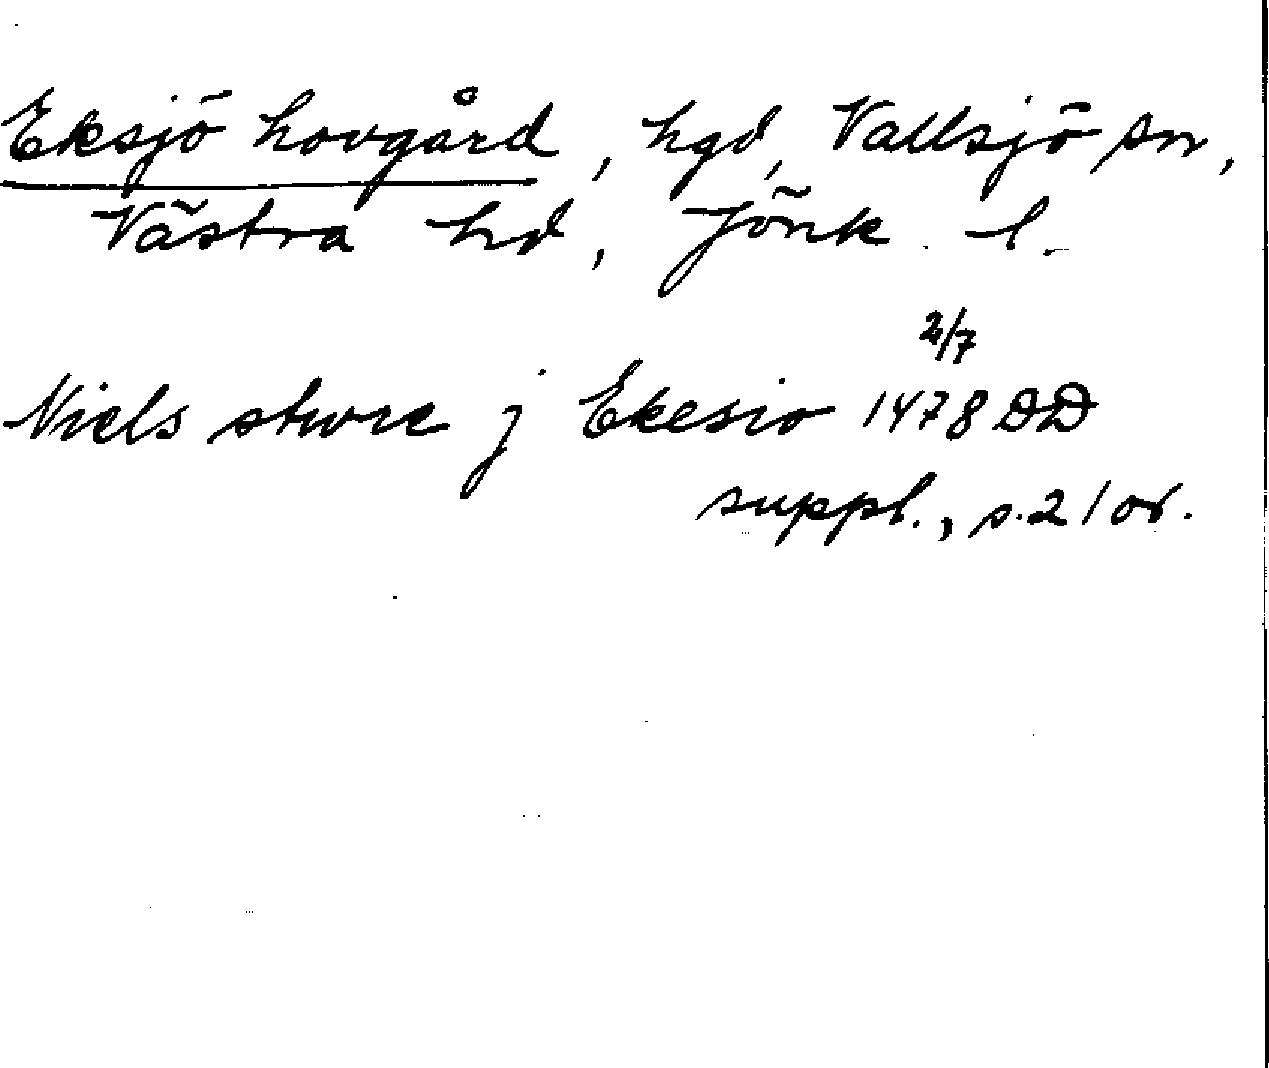 Eksjö hovgård, hgd, Vallsjö sn,
Västra hd, Jönk. l.
2/7
Niels stwre j Ekesio 1478 DD
suppl., s. 21 or.